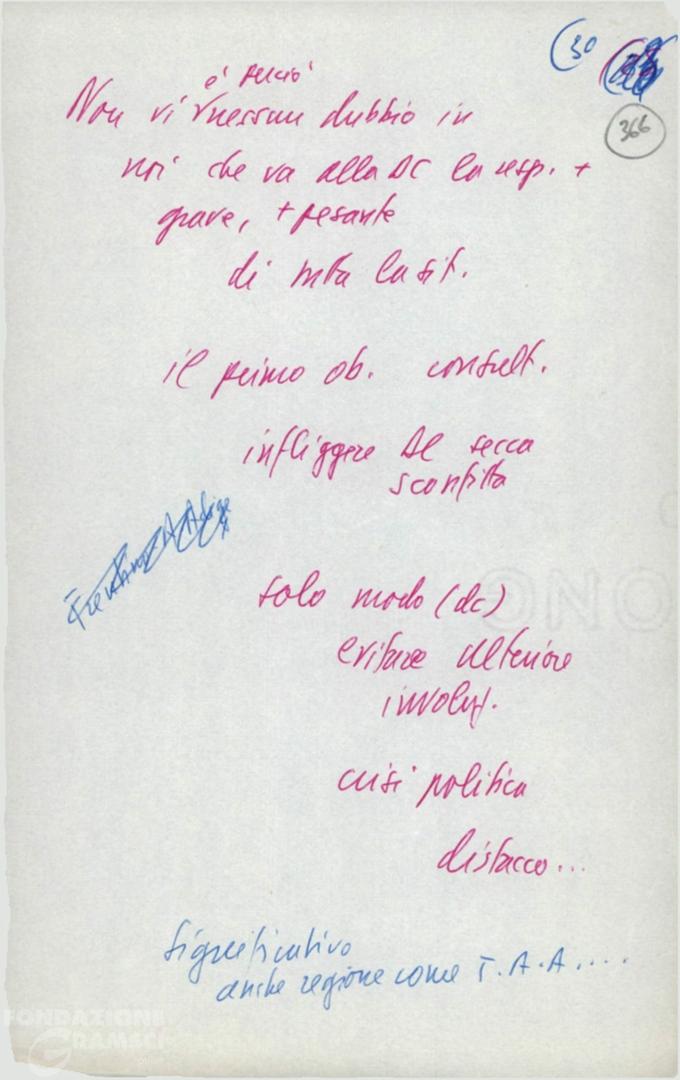 (30
366
è perciò
Non vi nessun dubbio in
noi che va alla DC la resp. +
grave, + pesante
di tutta la sit.
il primo ob. consult.
infliggere DC secca
sconfitta
solo modo (dc)
evitare ulteriore
involuz.
crisi politica
distacco...
significativo
anche regione come T.A.A....
FONDAZIONE
GRAMSCI
ONO